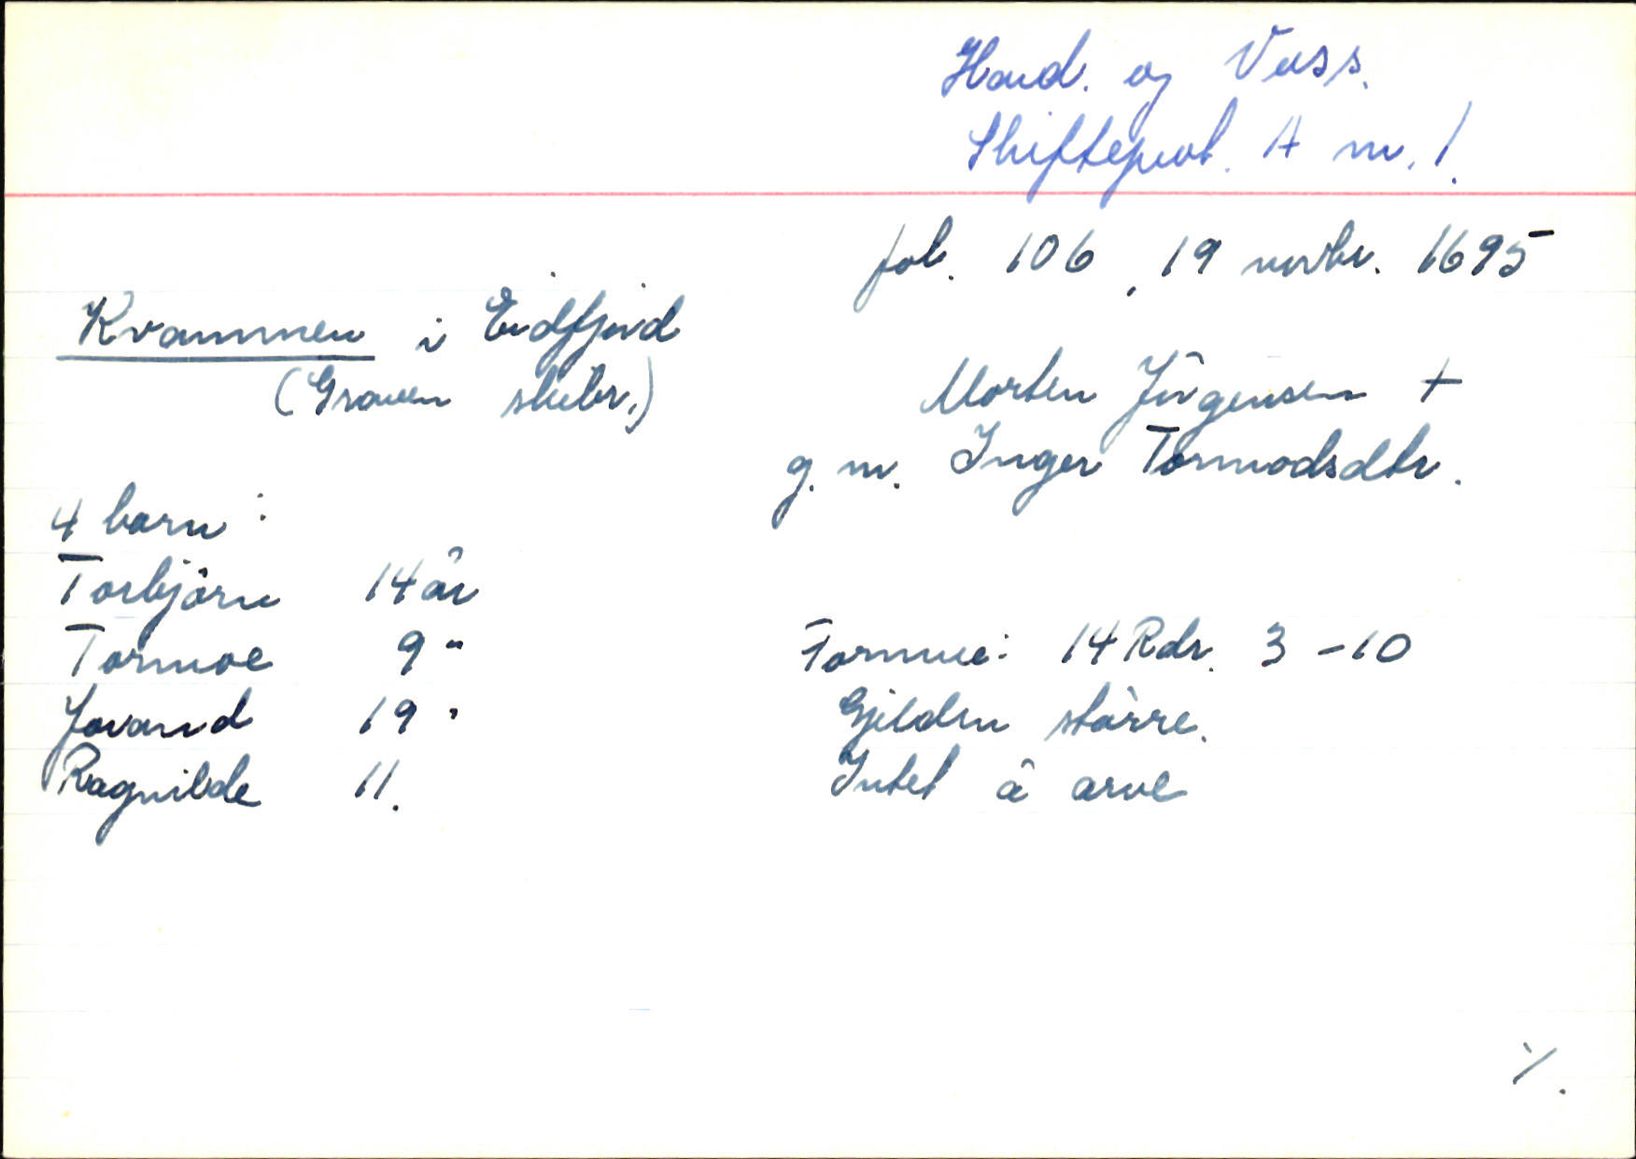 Hard. og Voss.
Skifteprot. A nr. 1.
fol. 106, 19 novbr. 1695
Kvammen i Eidfjord
(Graven skibr.)
Morten Jörgensen +
g. m. Inger Tormodsdtr.
4 barn:
Torbjörn 14 år
Tormoe 9 "
Jovand 19 "
Ragnilde 11.
Formue: 14 Rdr. 3 - 10
Gjelden större.
Intet å arve
⁒.